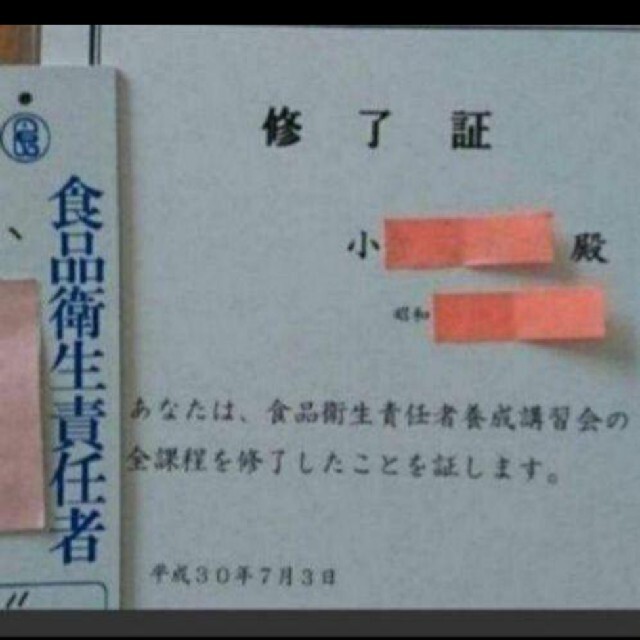 食品衛生責任者
修了証
小 殿
昭和
あなたは、食品衛生責任者養成講習会の
全課程を修了したことを証します。
平成30年7月3日